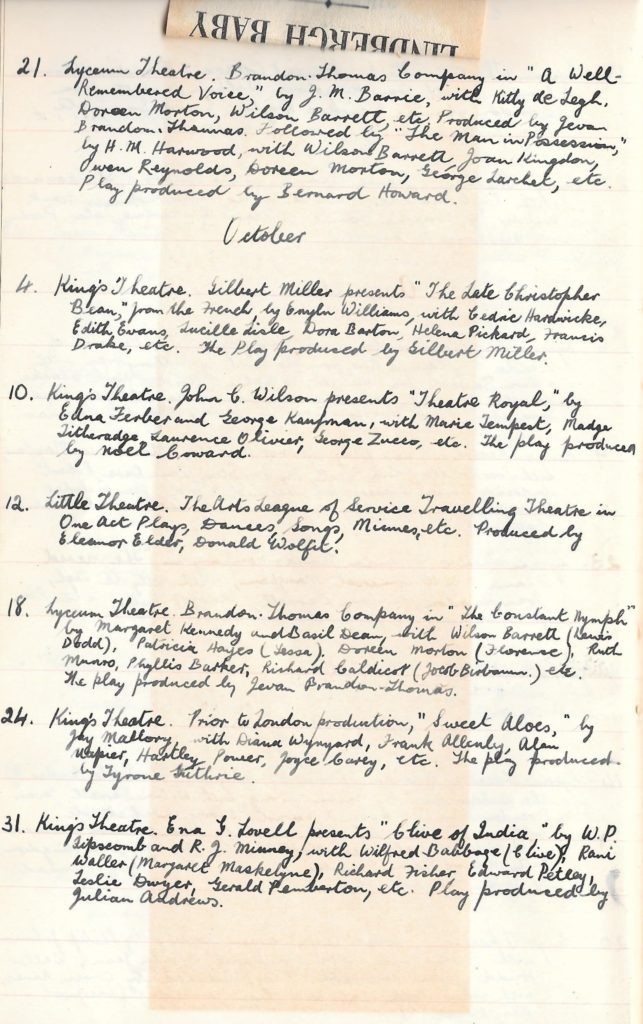 LINDBERGH BABY
21. Lyceum Theatre. Brandon-Thomas Company in "A Well-
Remembered Voice," by J. M. Barrie, with Kitty de Legh,
Doreen Morton, Wilson Barrett, etc. Produced by Jevan
Brandon-Thomas. Followed by "The Man in Possession,"
by H. M. Harwood, with Wilson Barrett, Joan Kingdon,
Owen Reynolds, Doreen Morton, George Larchet, etc.
Play produced by Bernard Howard.
October
4. King's Theatre. Gilbert Miller presents "The Late Christopher
Bean," from the French, by Emlyn Williams, with Cedric Hardwicke,
Edith Evans, Lucille Lisle Dora Barton, Helena Pickard, Francis
Drake, etc. The Play produced by Gilbert Miller.
10. King's Theatre. John C. Wilson presents "Theatre Royal," by
Edna Ferber and George Kaufman, with Marie Tempest, Madge
Titheradge, Laurence Olivier, George Zucco, etc. The play produced
by Noel Coward.
12. Little Theatre. The Arts League of Service Travelling Theatre in
One Act Plays, Dances, Songs, Mimes, etc. Produced by
Eleanor Elder, Donald Wolfit.
18. Lyceum Theatre. Brandon-Thomas Company in "The Constant Nymph"
by Margaret Kennedy and Basil Dean, with Wilson Barrett (Lewis
Dodd), Patricia Hayes (Tessa), Doreen Morton (Florence), Ruth
Munro, Phyllis Barker, Richard Caldicot (Jacob Birbaum.) etc.
The play produced by Jevan Brandon-Thomas.
24. King's Theatre. Prior to London production, "Sweet Aloes," by
Jay Mallory, with Diana Wynyard, Frank Allenby, Alan
Napier, Hartley Power, Joyce Carey, etc. The play produced
by Tyrone Guthrie.
31. King's Theatre. Ena G. Lovell presents "Clive of India," by W. P.
Lipscomb and R. J. Minney, with Wilfred Babbage (Clive), Rani
Waller (Margaret Maskelyne), Richard Fisher, Edward Petley,
Leslie Dwyer, Gerald Pemberton, etc. Play produced by
Julian Andrews.